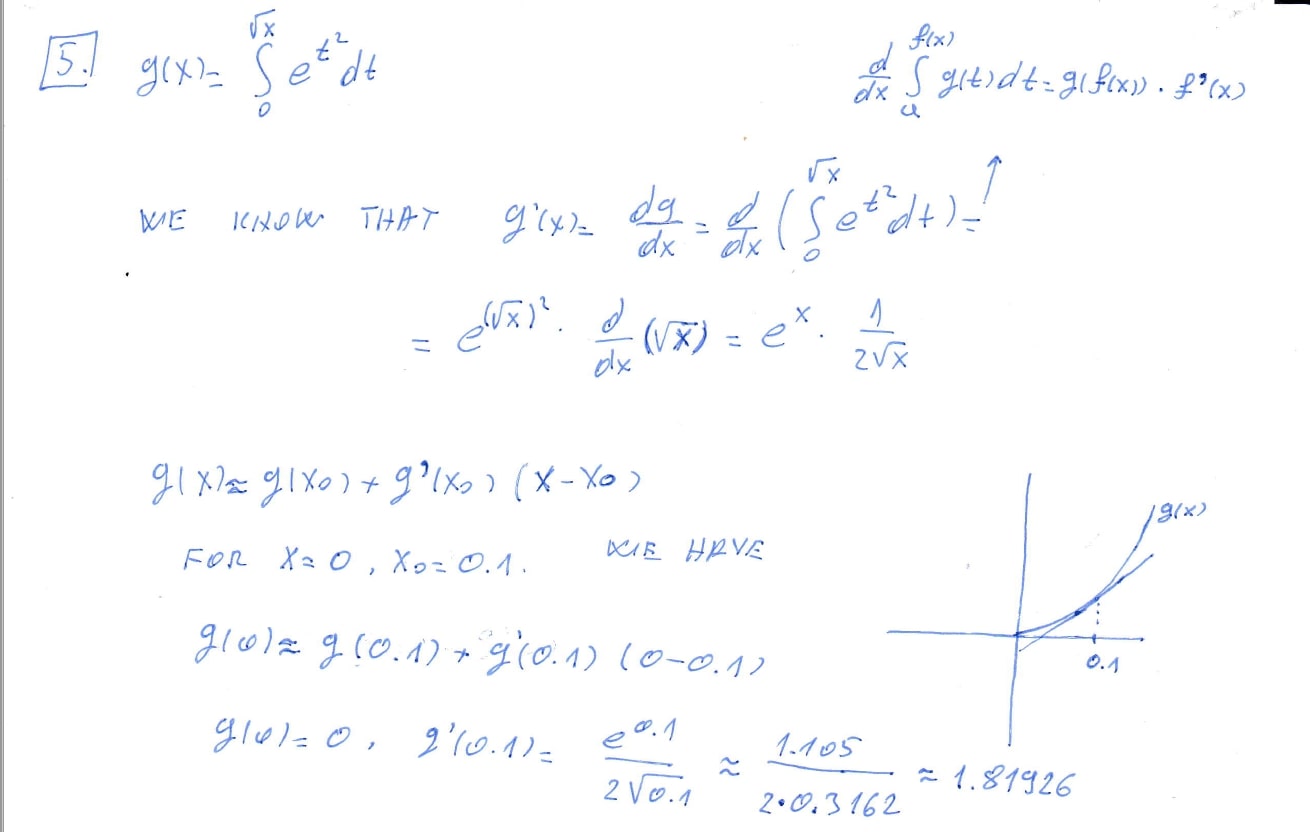 5. g(x) = ∫₀^√x e^(t²) dt
d/dx ∫ₐ^f(x) g(t) dt = g(f(x)) · f'(x)
WE KNOW THAT g'(x) = dg/dx = d/dx ( ∫₀^√x e^(t²) dt ) = ↑
= e^((√x)²) · d/dx (√x) = e^x · 1/(2√x)
g(x) ≈ g(x₀) + g'(x₀) (x - x₀)
FOR x = 0, x₀ = 0.1. WE HAVE
g(0) ≈ g(0.1) + g'(0.1) (0-0.1)
g(0) = 0, g'(0.1) = e^0.1/(2√0.1) ≈ 1.105/(2·0.3162) ≈ 1.81926
g(x)
0.1